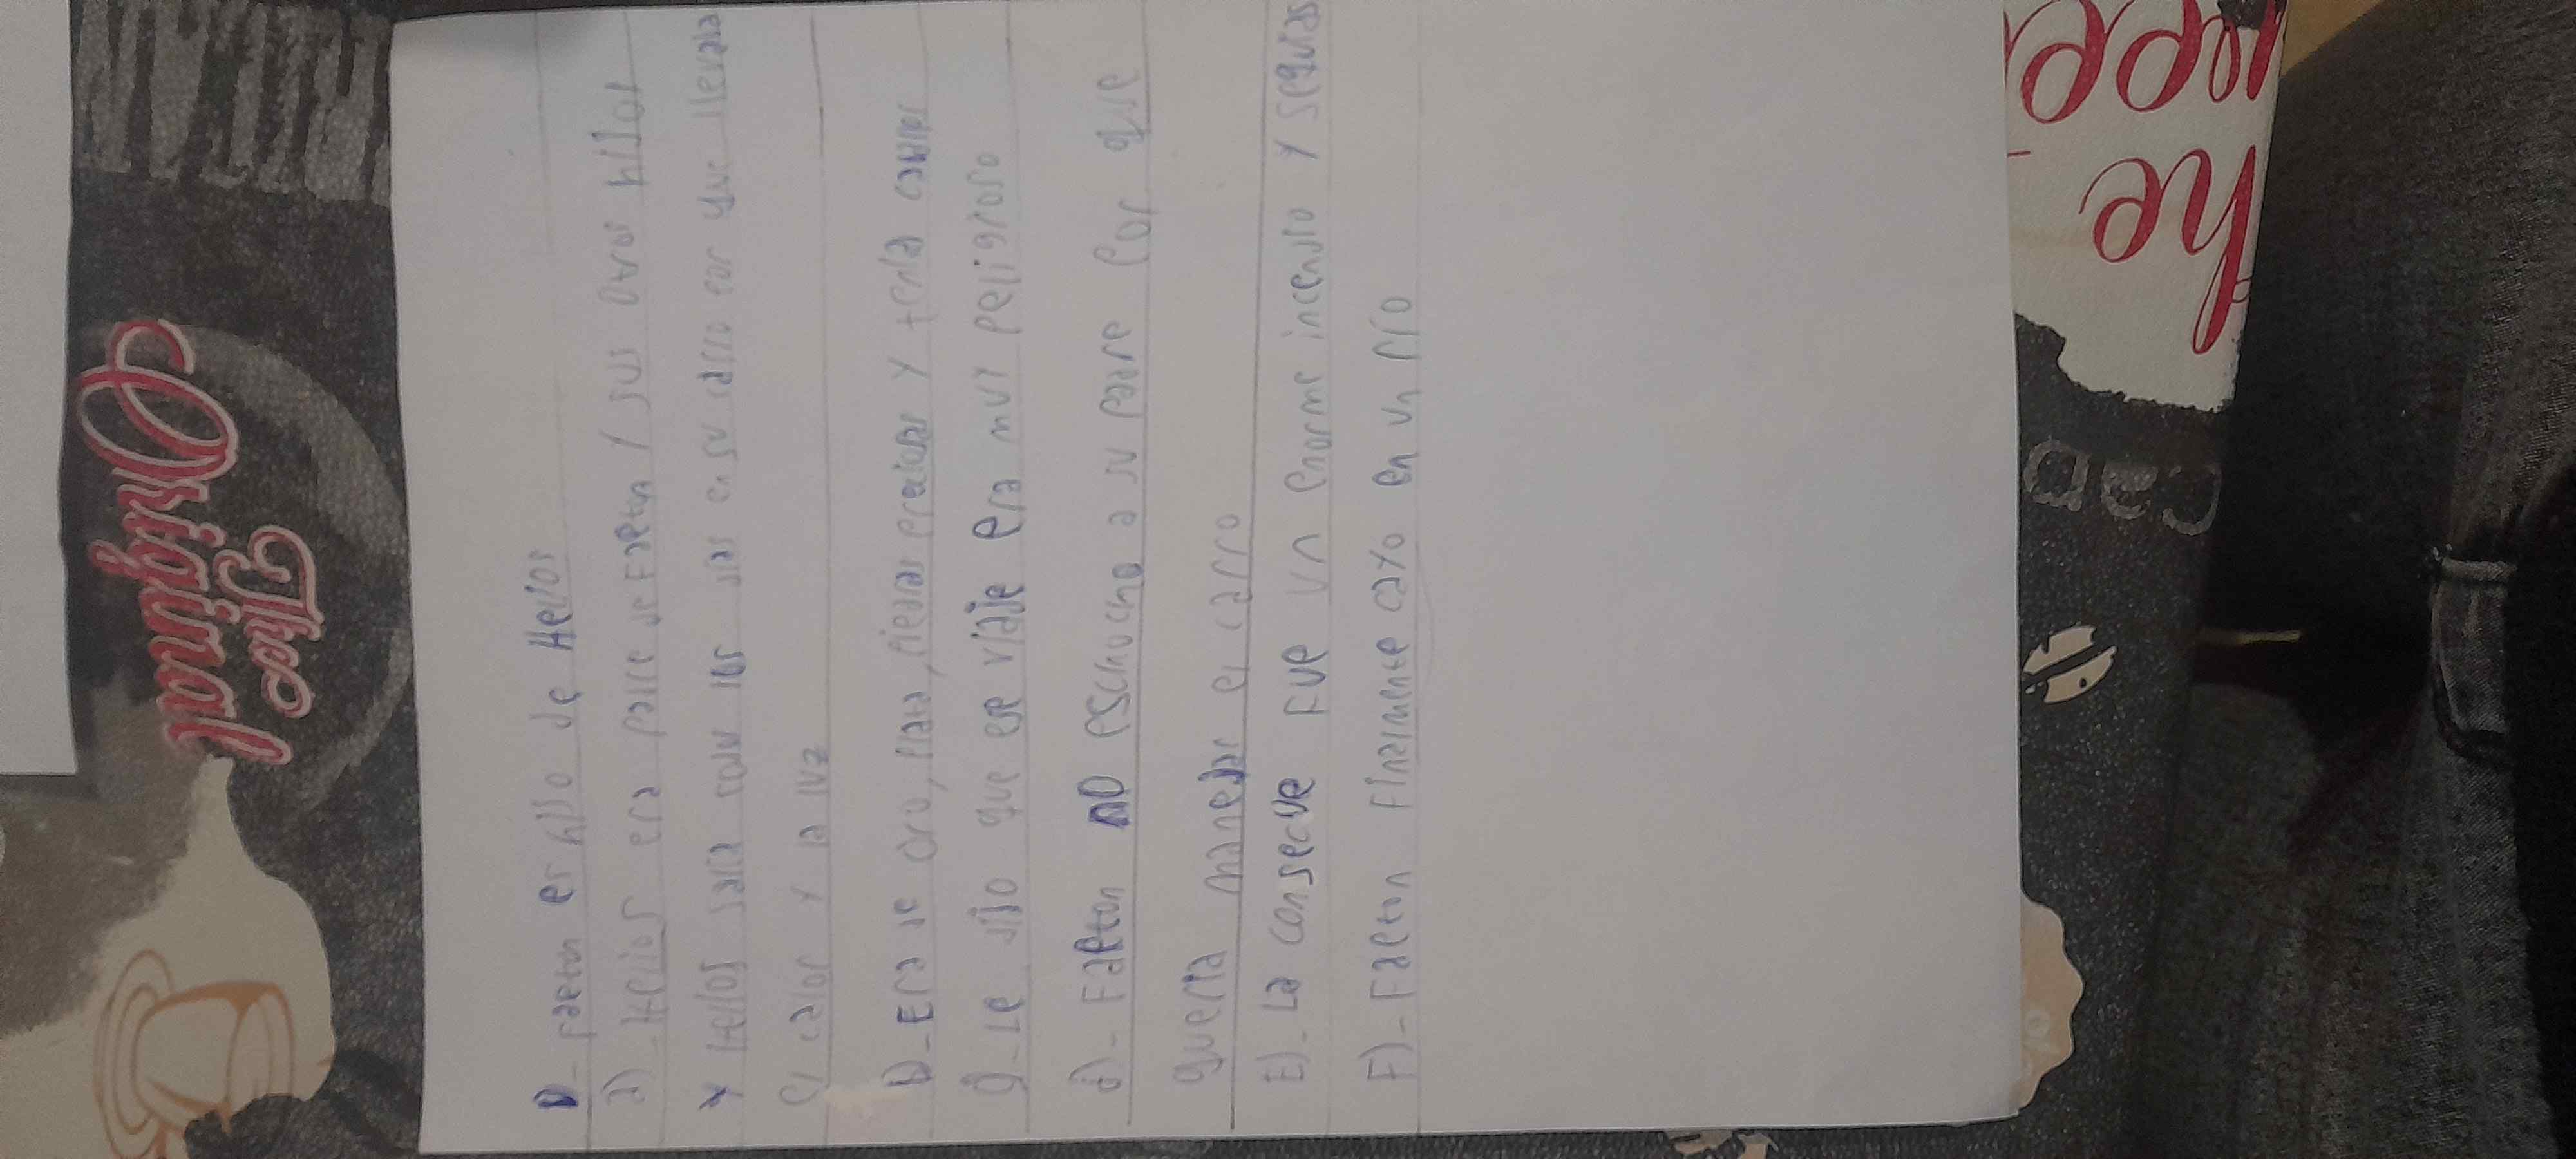 D_ Faeton es hijo de Helios
a)_ Helios era padre de Faeton y sus otros hijos
y Helios salia todos los dias en su carro por que llevaba
el calor y la luz
b)_ Era de oro, plata, piedras preciosas y tenia
c)_ Le dijo que ese viaje era muy peligroso
d)_ Faeton no eschucho a su padre por que
queria manejar el carro
E)_ La consecue fue un enorme incendio y sequias
F)_ Faeton Finalmente cayo en un río
The
Original
he